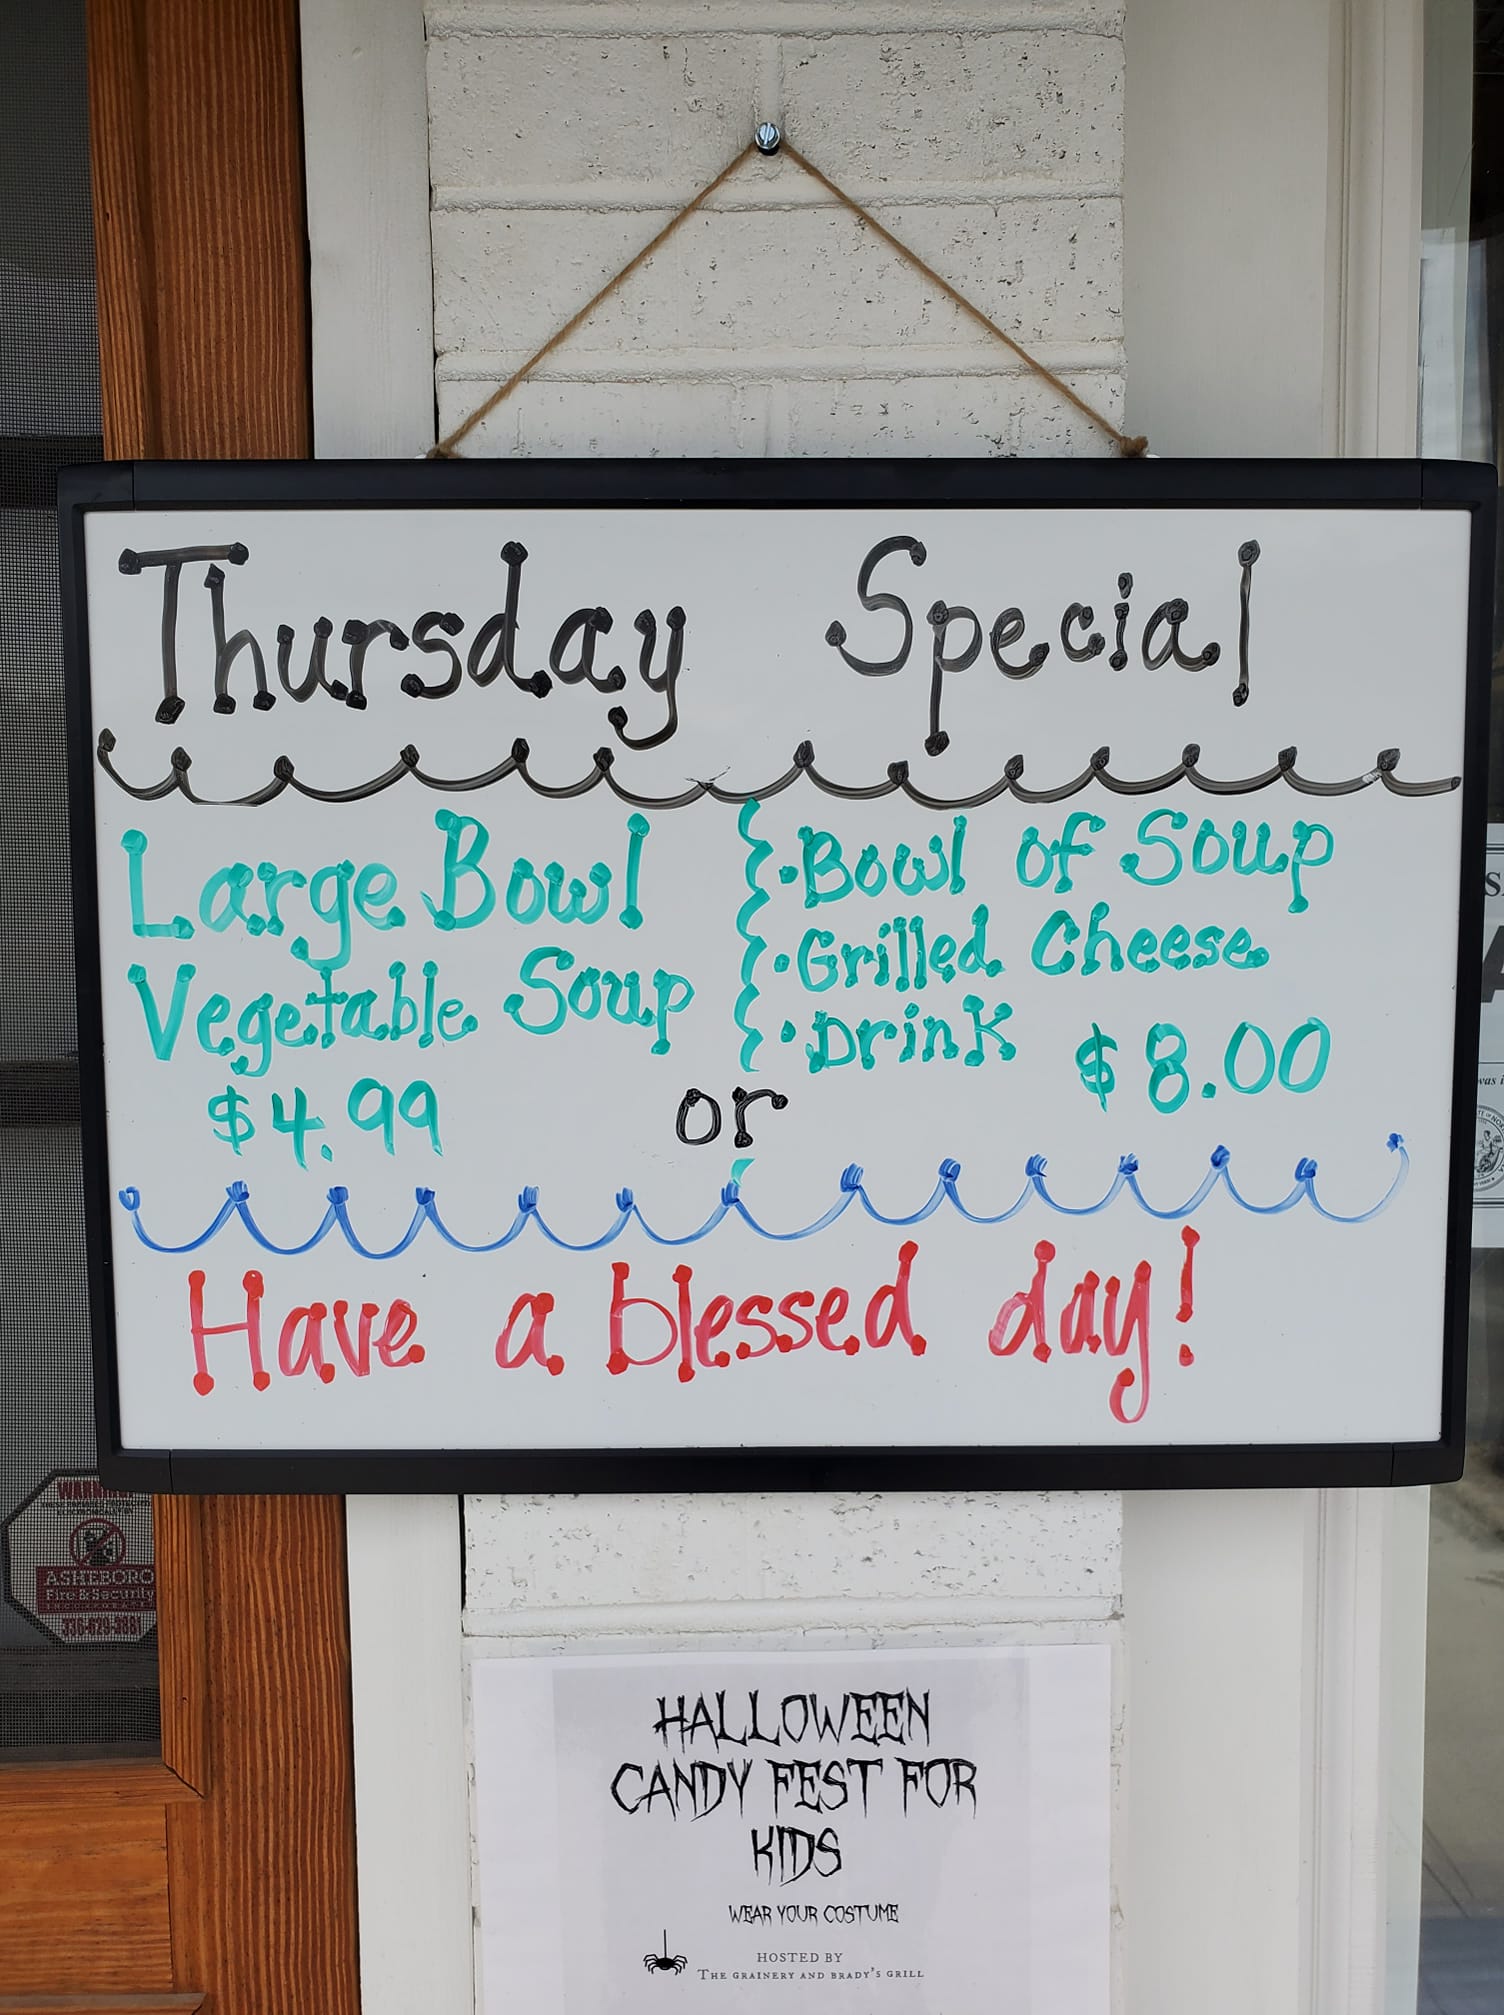 Thursday Special
Large Bowl
Vegetable Soup
$4.99
or
·Bowl of Soup
·Grilled Cheese
·Drink $8.00
Have a blessed day!
ASHEBORO
Fire & Security
336-629-3881
HALLOWEEN
CANDY FEST FOR
KIDS
WEAR YOUR COSTUME
HOSTED BY
THE GRAINERY AND BRADY'S GRILL